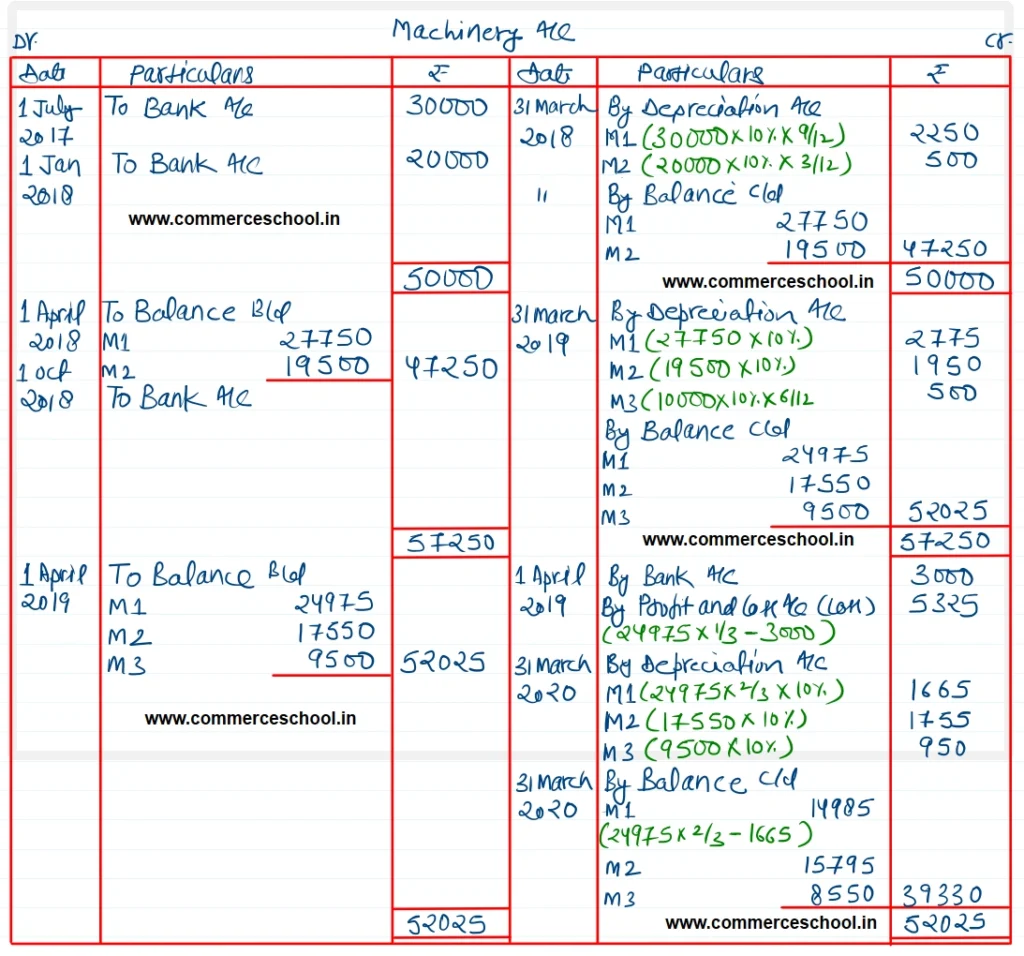 Machinery A/c
Dr. Cr.
Date Particulars ₹ Date Particulars ₹
1 July To Bank A/c 30000 31 March By Depreciation A/c
2017 2018 M1 (30000 x 10% x 9/12) 2250
1 Jan To Bank A/C 20000 M2 (20000 x 10% x 3/12) 500
2018 " By Balance C/d
www.commerceschool.in M1 27750
M2 19500 47250
50000 www.commerceschool.in 50000
1 April To Balance B/d 31 March By Depreciation A/c
2018 M1 27750 2019 M1 (27750 x 10%) 2775
1 Oct M2 19500 47250 M2 (19500 x 10%) 1950
2018 To Bank A/c M3 (10000x10%x6/12 500
By Balance C/d
M1 24975
M2 17550
M3 9500 52025
57250 www.commerceschool.in 57250
1 April To Balance B/d 1 April By Bank A/C 3000
2019 M1 24975 2019 By Profit and Loss A/c (Loss) 5325
M2 17550 (24975 x 1/3 - 3000)
M3 9500 52025 31 March By Depreciation A/C
2020 M1 (24975x 2/3 x 10%) 1665
www.commerceschool.in M2 (17550 x 10%) 1755
M3 (9500 x 10%) 950
31 March By Balance C/d
2020 M1 14985
(24975 x 2/3 - 1665)
M2 15795
M3 8550 39330
52025 www.commerceschool.in 52025